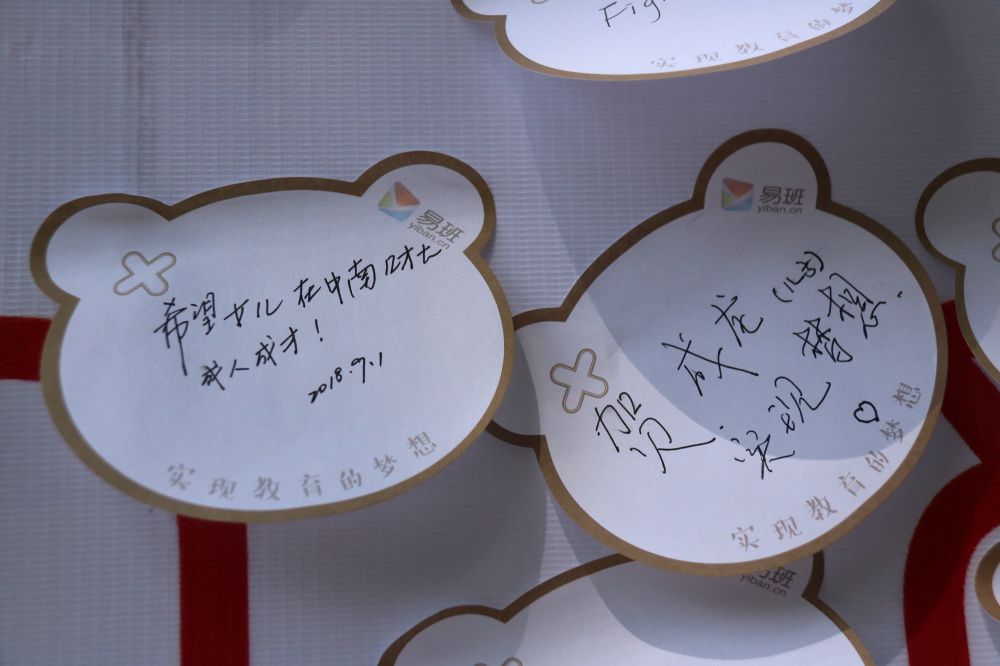 Fig
实现教育的梦
易班
yiban.cn
希望女儿在中南财大
成人成才！
2018.9.1
实现教育的梦想
易班
yiban.cn
贺成龙(儿子)
实现梦想.
实现教育的梦想
易班
yiban.cn